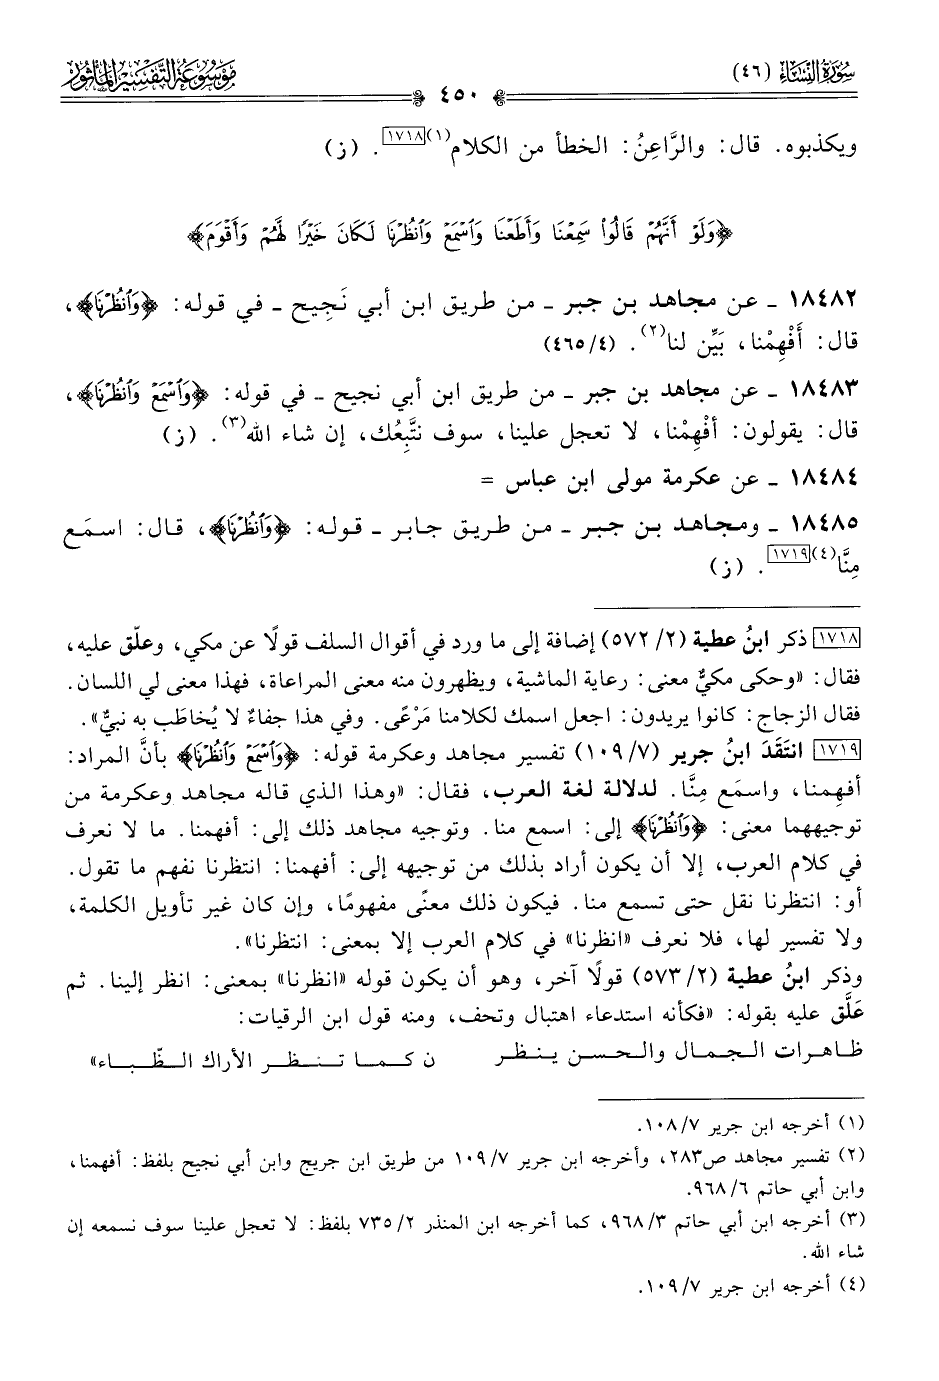 سُورَةُ النِّسَاءِ (٤٦)
٤٥٠
مَوْسُوعَةُ التَّفْسِيرِ المَأْثُورِ
ويكذبوه. قال: والرَّاعِنُ: الخطأ من الكلام(١)[١٧١٨]. (ز)
﴿وَلَوْ أَنَّهُمْ قَالُوا۟ سَمِعْنَا وَأَطَعْنَا وَٱسْمَعْ وَٱنظُرْنَا لَكَانَ خَيْرًا لَّهُمْ وَأَقْوَمَ﴾
١٨٤٨٢ ـ عن مجاهد بن جبر ـ من طريق ابن أبي نَجِيح ـ في قوله: ﴿وَٱنظُرْنَا﴾،
قال: أَفْهِمْنا، بَيِّن لنا(٢). (٤/ ٤٦٥)
١٨٤٨٣ ـ عن مجاهد بن جبر ـ من طريق ابن أبي نجيح ـ في قوله: ﴿وَٱسْمَعْ وَٱنظُرْنَا﴾،
قال: يقولون: أفْهِمْنا، لا تعجل علينا، سوف نتَّبِعُك، إن شاء الله(٣). (ز)
١٨٤٨٤ ـ عن عكرمة مولى ابن عباس =
١٨٤٨٥ ـ ومجاهد بن جبر ـ من طريق جابر ـ قوله: ﴿وَٱنظُرْنَا﴾، قال: اسمَع
مِنَّا(٤)[١٧١٩]. (ز)
[١٧١٨] ذكر ابنُ عطية (٢/ ٥٧٢) إضافة إلى ما ورد في أقوال السلف قولًا عن مكي، وعلّق عليه،
فقال: «وحكى مكيٌّ معنى: رعاية الماشية، ويظهرون منه معنى المراعاة، فهذا معنى لي اللسان.
فقال الزجاج: كانوا يريدون: اجعل اسمك لكلامنا مَرْعًى. وفي هذا جفاءٌ لا يُخاطَب به نبيٌّ».
[١٧١٩] انتَقَدَ ابنُ جرير (٧/ ١٠٩) تفسير مجاهد وعكرمة قوله: ﴿وَٱسْمَعْ وَٱنظُرْنَا﴾ بأنَّ المراد:
أفهِمنا، واسمَع مِنَّا. لدلالة لغة العرب، فقال: «وهذا الذي قاله مجاهد وعكرمة من
توجيههما معنى: ﴿وَٱنظُرْنَا﴾ إلى: اسمع منا. وتوجيه مجاهد ذلك إلى: أفهمنا. ما لا نعرف
في كلام العرب، إلا أن يكون أراد بذلك من توجيهه إلى: أفهمنا: انتظرنا نفهم ما تقول.
أو: انتظرنا نقل حتى تسمع منا. فيكون ذلك معنًى مفهومًا، وإن كان غير تأويل الكلمة،
ولا تفسير لها، فلا نعرف «انظرنا» في كلام العرب إلا بمعنى: انتظرنا».
وذكر ابنُ عطية (٢/ ٥٧٣) قولًا آخر، وهو أن يكون قوله «انظرنا» بمعنى: انظر إلينا. ثم
عَلَّق عليه بقوله: «فكأنه استدعاء اهتبال وتحف، ومنه قول ابن الرقيات:
ظاهرات الجمال والحسن ينظر ن كما تنظر الأراك الظّباء»
(١) أخرجه ابن جرير ٧/ ١٠٨.
(٢) تفسير مجاهد ص٢٨٣، وأخرجه ابن جرير ٧/ ١٠٩ من طريق ابن جريج وابن أبي نجيح بلفظ: أفهمنا،
وابن أبي حاتم ٦/ ٩٦٨.
(٣) أخرجه ابن أبي حاتم ٣/ ٩٦٨، كما أخرجه ابن المنذر ٢/ ٧٣٥ بلفظ: لا تعجل علينا سوف نسمعه إن
شاء الله.
(٤) أخرجه ابن جرير ٧/ ١٠٩.